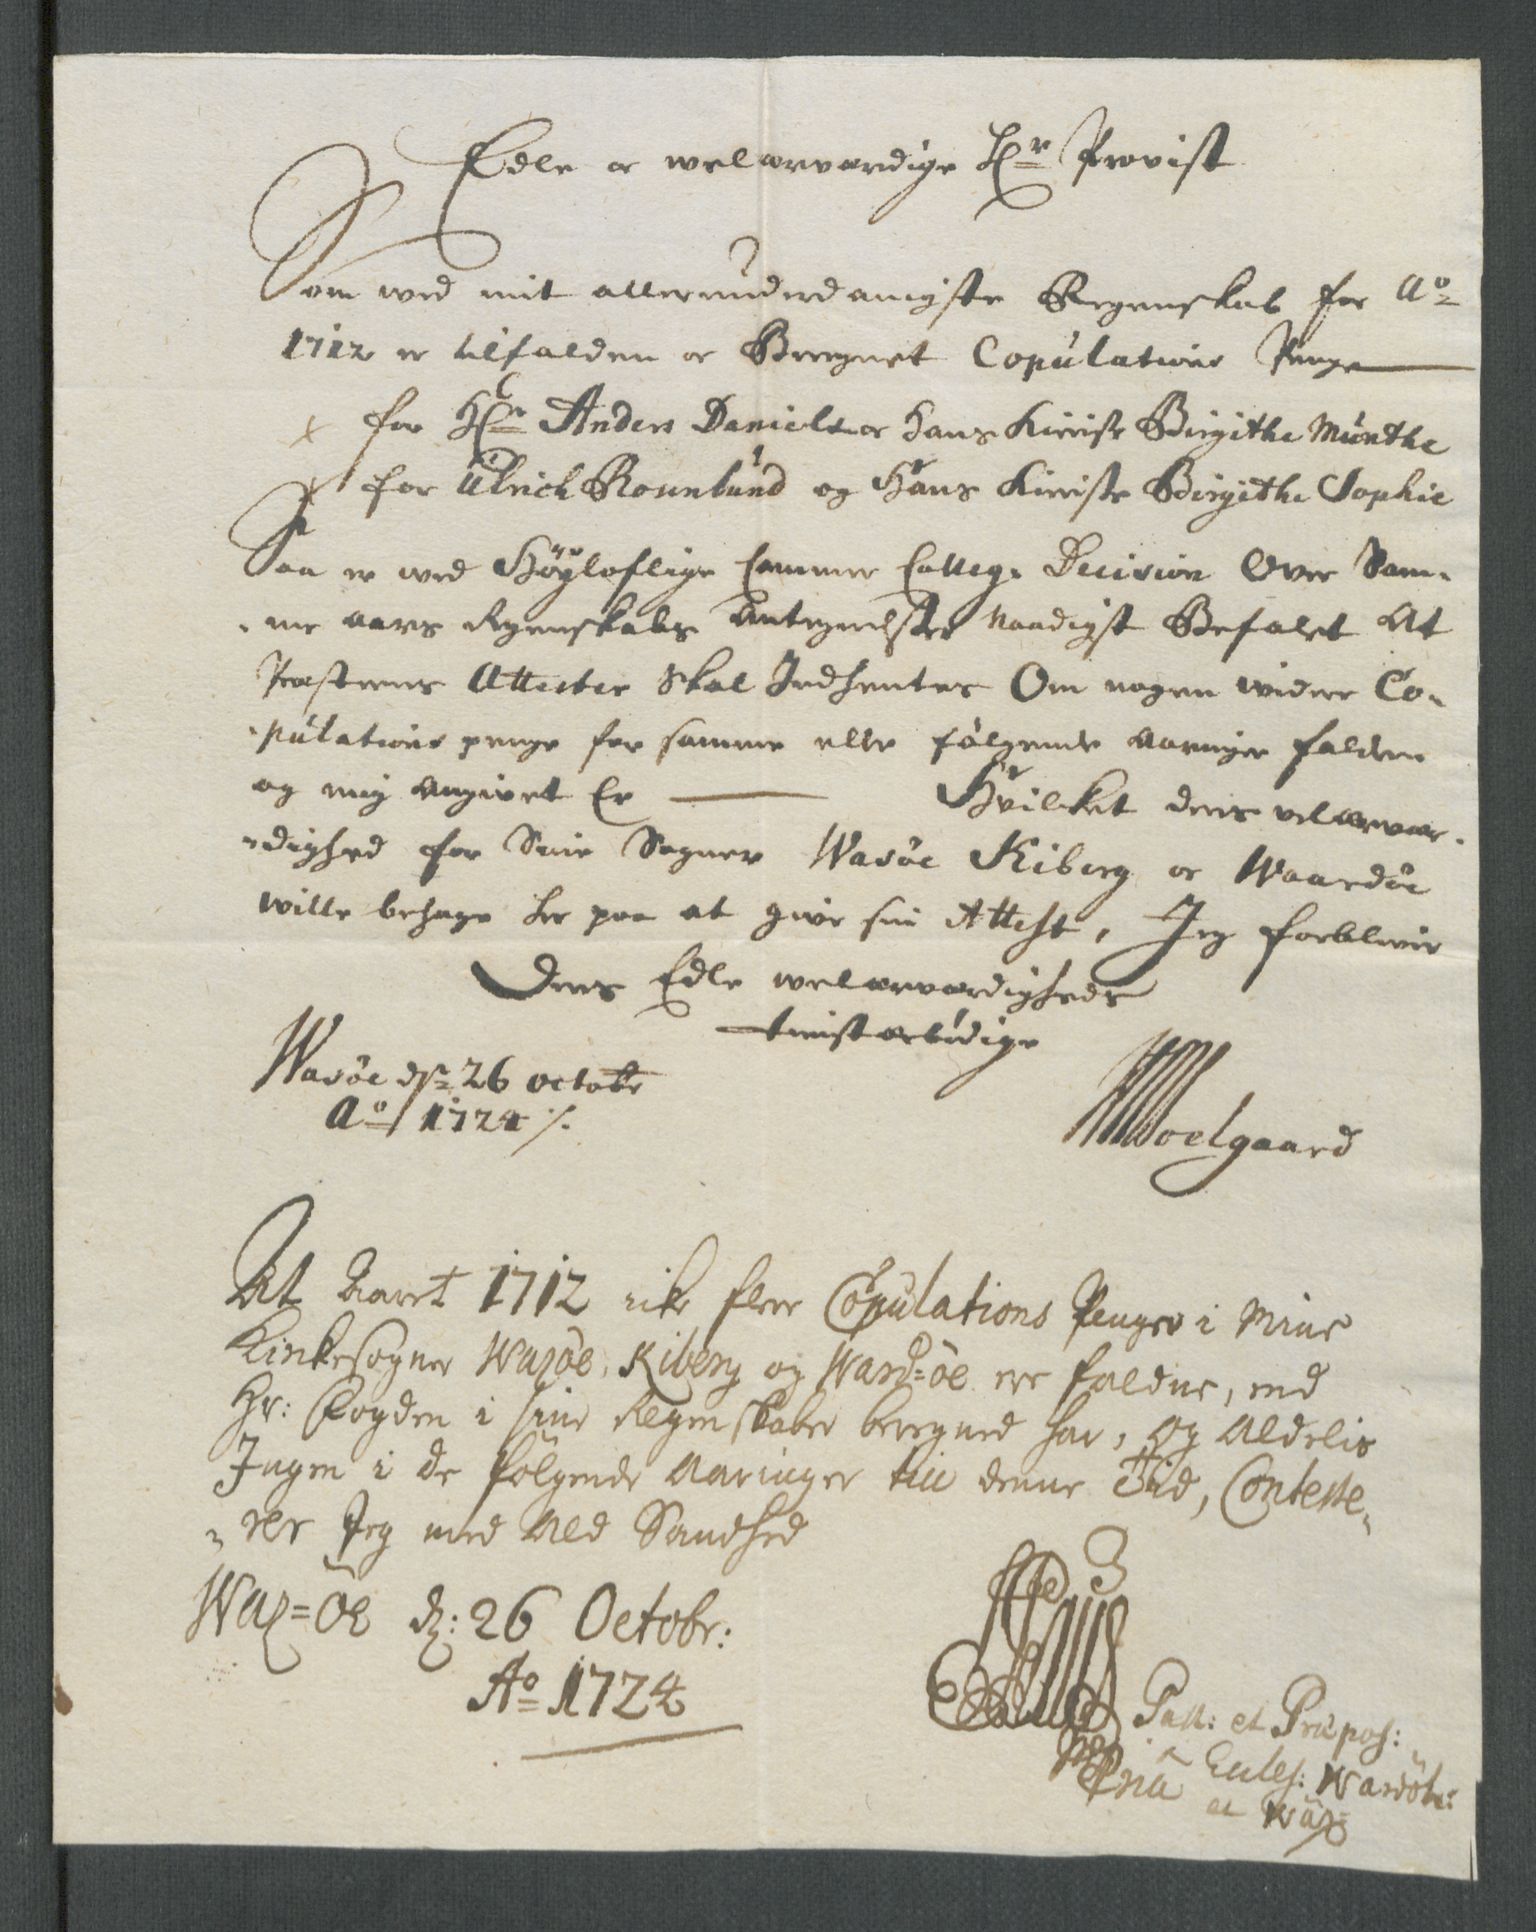 Edle oc welærværdige Hr Provist
Som wed mit allerunderdanigste Regenskab for Ao
1712 er tilfalden oc Beregnet Copulations Penge
for Hr Anders Daniels oc hans Kieriste Birgithe Munthe
for Ulrich Rosenlund og Hans Kieriste Birgithe Sophie
Saa er wed Höÿloflige Cammer Colleg. Decision Over Sam-
-me aars Regenskabs Antegnelser Naadigst Befalet At
Præsternes Attester skal Indhentes Om nogen widere Co-
-pulations penge for samme eller følgende aaringer falden
og mig angivet Er Hvilket deris velærvær-
-dighed for Sine Sogner Wasöe Kiberg oc Waardöe
wille behage her paa at give sin Attest, Jeg forblever
Deris Edle welærværdigheds
tienistærbödige
Wasöe dn 26 octobr
Ao 1724 ⁒
Soelgaard
At Aaret 1712 icke flere Copulations Penger i Mine
Kirkesogner Wasöe, Kiberg og Ward=öe ere faldne, end
Hr: Fogden i sine Regenskaber beregned har, og Aldelis
Ingen i de fölgende Aaringer till denne Tid, Conteste-
-rer Jeg med Ald Sandhed
Waz=öe d: 26 Octobr:
Ao 1724
Past: et Præpos:
Eccles: Wardöens:
et Waz